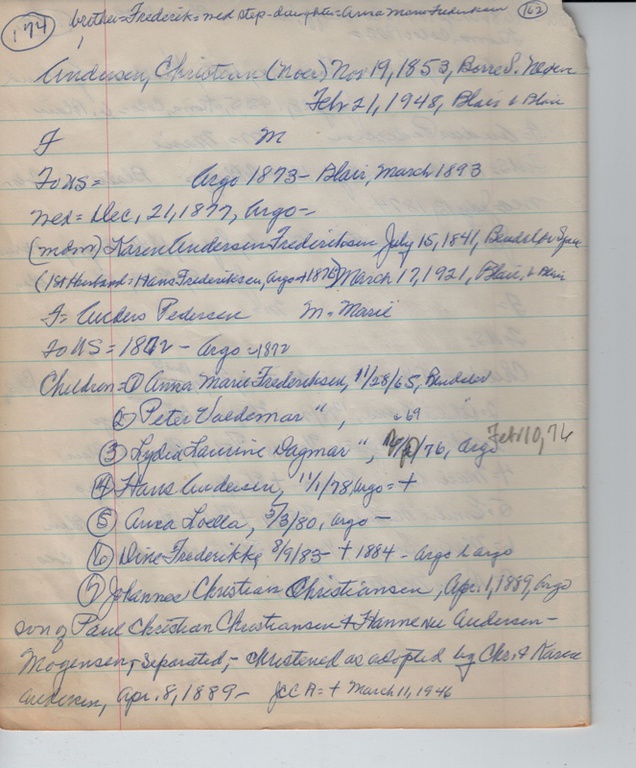 174 brother=Frederik=wed step-daughter=Anna Marie Frederiksen 162
Andersen, Christian (Noer) Nov 19, 1853, Borre S.
Feb 21, 1948, Blair b Blair
F M
To US = Argo 1873 - Blair, March 1893
Wed = Dec, 21, 1877, Argo -
(mom) Karen Andersen Frederiksen July 15, 1841,
(1st Husband: Hans Frederiksen, Argo + 1876) March 17, 1921, Blair, b Blair
F= Anders Pedersen M= Marie
To US = 1872 - Argo 1872
Children = ① Anna Marie Frederiksen, 11/28/65,
② Peter Valdemar ", " 69 "
③ Lydia Laurine Dagmar ", /76, Argo Feb 10, 76
④ Hans Andersen, 11/1/78, Argo = +
⑤ Anna Loella, 5/3/80, Argo -
⑥ Dine Frederikke, 8/9/83 - + 1884 - Argo b Argo
⑦ Johannes Christian Christiansen, Apr. 1, 1889, Argo
son of Paul Christian Christiansen + Hanne nee Andersen -
Mogensen, - Separated, - christened as adopted by Chr. + Karen
Andersen, Apr. 8, 1889 - JCC A = + March 11, 1946